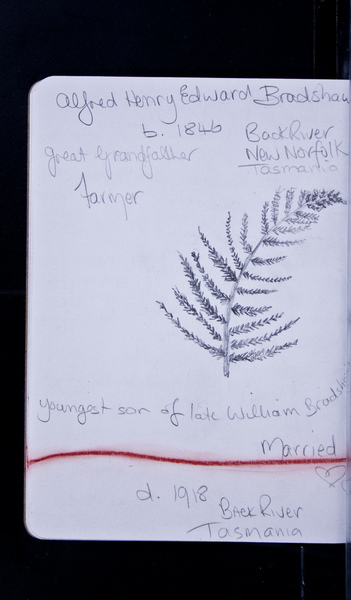 Alfred Henry Edward Bradshaw
b. 1846
Back River
great Grandfather
New Norfolk
Tasmania
Farmer
youngest son of late William Bradsha
Married
d. 1918
Back River
Tasmania